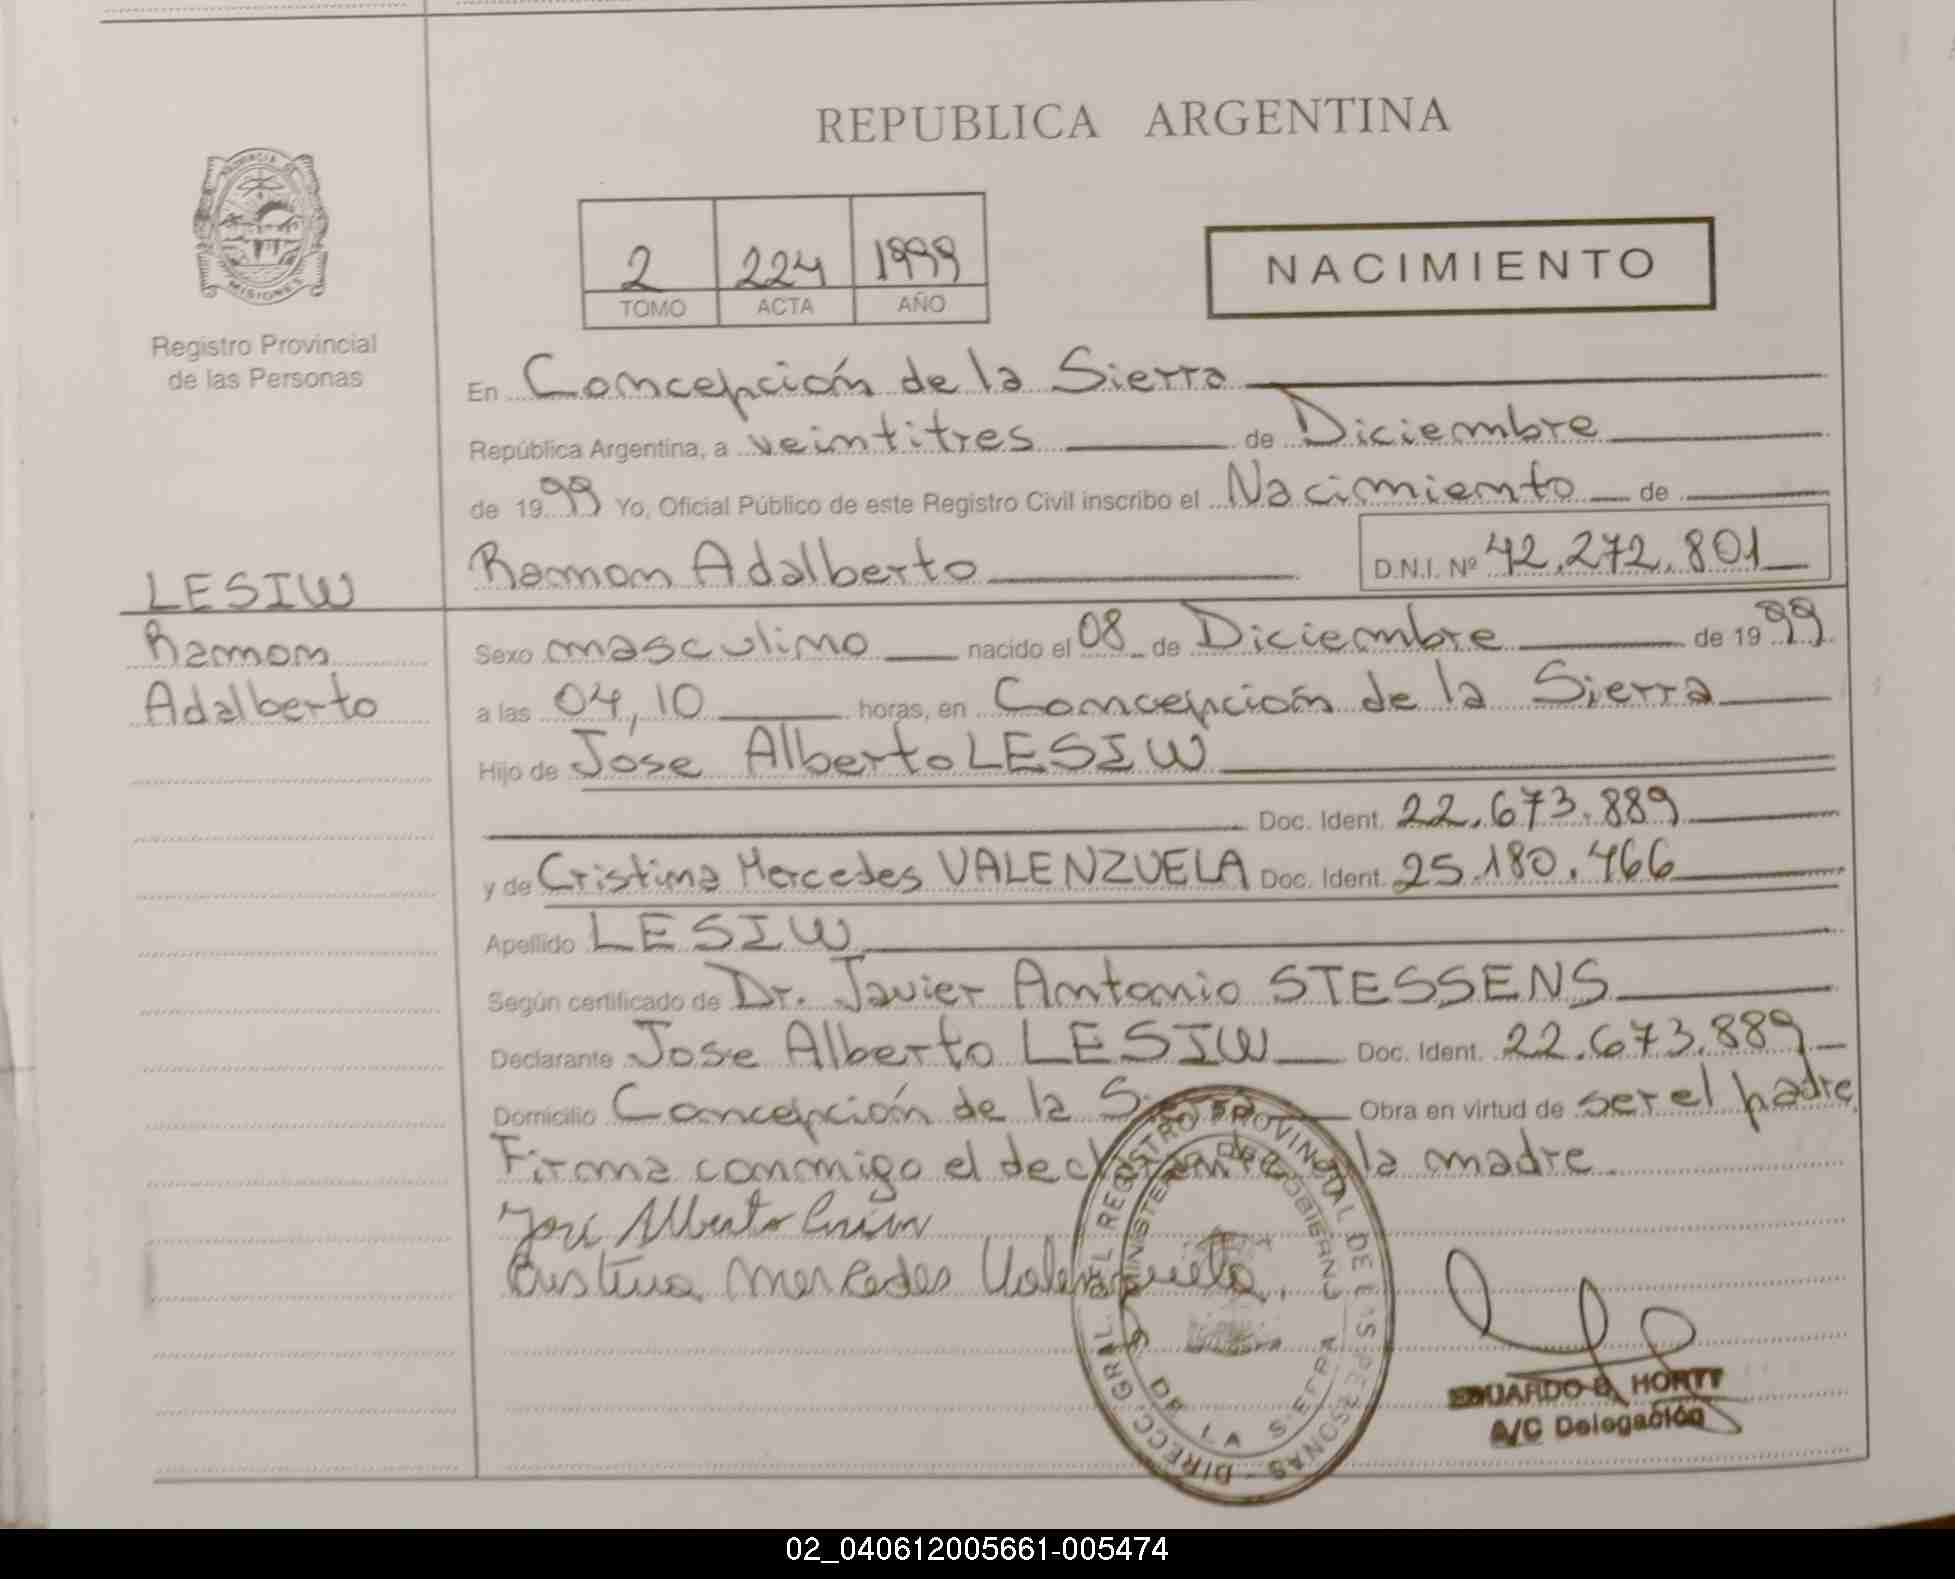 REPUBLICA ARGENTINA
PROVINCIA DE
MISIONES
Registro Provincial
de las Personas
2 224 1999
TOMO ACTA AÑO
NACIMIENTO
En Concepción de la Sierra
República Argentina, a veintitres de Diciembre
de 1999 Yo, Oficial Público de este Registro Civil inscribo el Nacimiento de
Ramon Adalberto D.N.I. Nº 42.272.801
LESIW
Ramon
Adalberto
Sexo masculino nacido el 08 de Diciembre de 1999
a las 04,10 horas, en Concepción de la Sierra
Hijo de Jose Alberto LESIW
Doc. Ident. 22.673.889
y de Cristina Mercedes VALENZUELA Doc. Ident. 25.180.466
Apellido LESIW
Según certificado de Dr. Javier Antonio STESSENS
Declarante Jose Alberto LESIW Doc. Ident. 22.673.889
Domicilio Concepción de la Sierra Obra en virtud de ser el padre,
Firma conmigo el declarante la madre
José Alberto
Cristina Mercedes Valenzuela
DIRECC. GRAL. DEL REGISTRO PROVINCIAL DE LAS PERSONAS
MINISTERIO DE GOBIERNO
DE LA SIERRA
EDUARDO
A/C Delegación
02_040612005661-005474